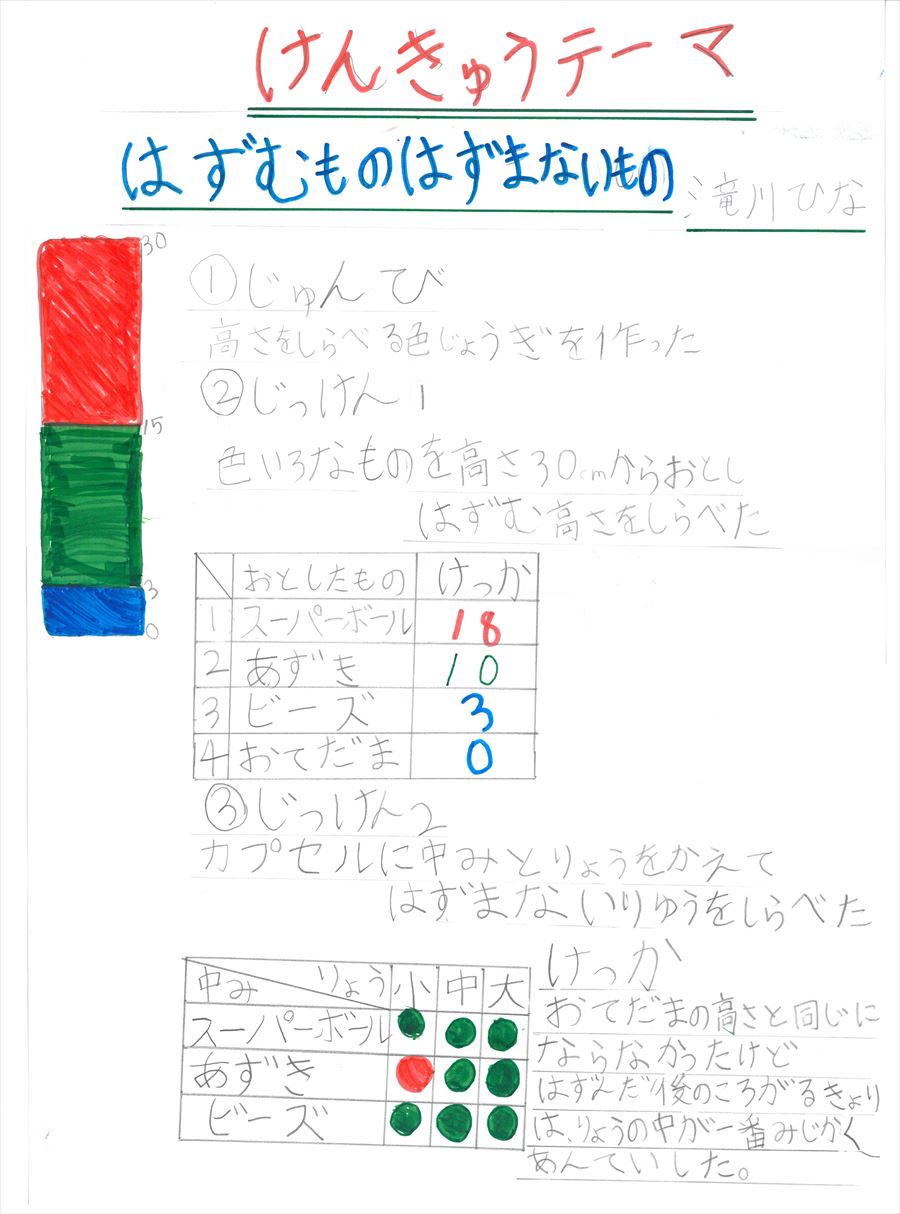 けんきゅうテーマ
はずむものはずまないもの
滝川ひな
30
15
3
0
①じゅんび
高さをしらべる色じょうぎを作った
②じっけん1
色いろなものを高さ30cmからおとし
はずむ高さをしらべた
おとしたもの けっか
1 スーパーボール 18
2 あずき 10
3 ビーズ 3
4 おてだま 0
③じっけん2
カプセルに中みとりょうをかえて
はずまないりゆうをしらべた
中み りょう 小 中 大
スーパーボール
あずき
ビーズ
けっか
おてだまの高さと同じに
ならなかったけど
はずんだ後のころがるきょり
は、りょうの中が一番みじかく
あんていした。